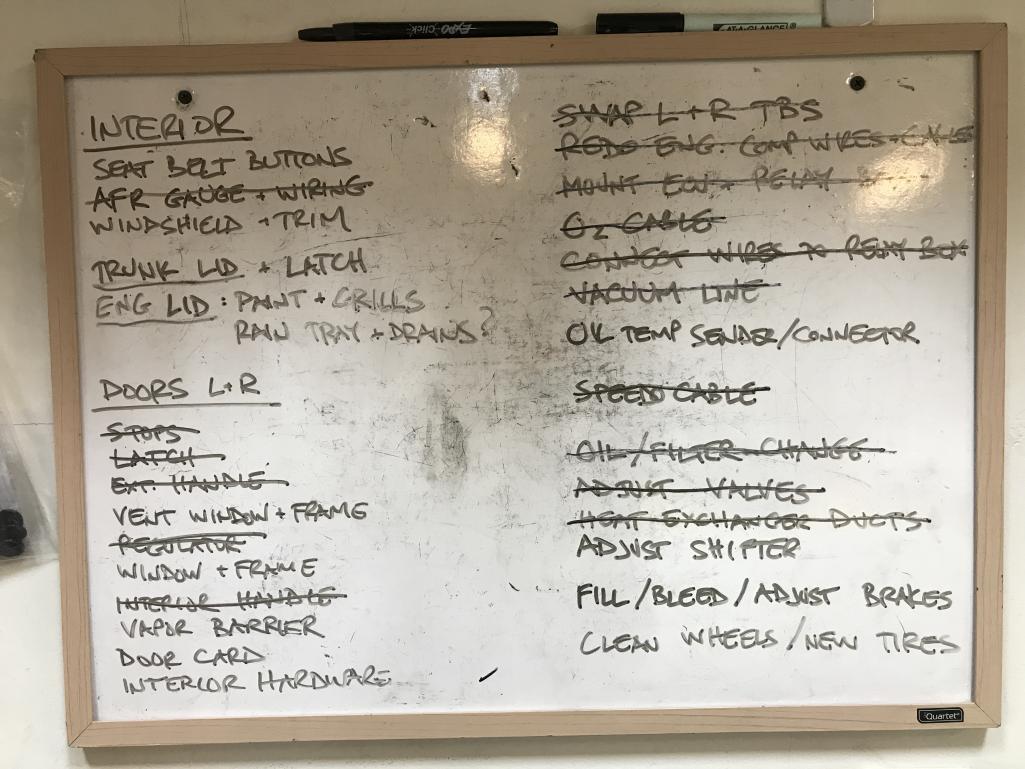 EXPO Click
AT-A-GLANCE®
INTERIOR
SEAT BELT BUTTONS
AFR GAUGE + WIRING
WINDSHIELD + TRIM
TRUNK LID + LATCH
ENG LID : PAINT + GRILLS
RAIN TRAY + DRAINS?
DOORS L+R
STOPS
LATCH
EXT. HANDLE
VENT WINDOW + FRAME
REGULATOR
WINDOW + FRAME
INTERIOR HANDLE
VAPOR BARRIER
DOOR CARD
INTERIOR HARDWARE
SWAP L+R TBS
REDO ENG. COMP WIRES + CABLE
MOUNT ECU + RELAY
O2 CABLE
CONNECT WIRES TO RELAY BOX
VACUUM LINE
OIL TEMP SENDER/CONNECTOR
SPEEDO CABLE
OIL/FILTER CHANGE
ADJUST VALVES
HEAT EXCHANGER DUCTS
ADJUST SHIFTER
FILL/BLEED/ADJUST BRAKES
CLEAN WHEELS/NEW TIRES
Quartet